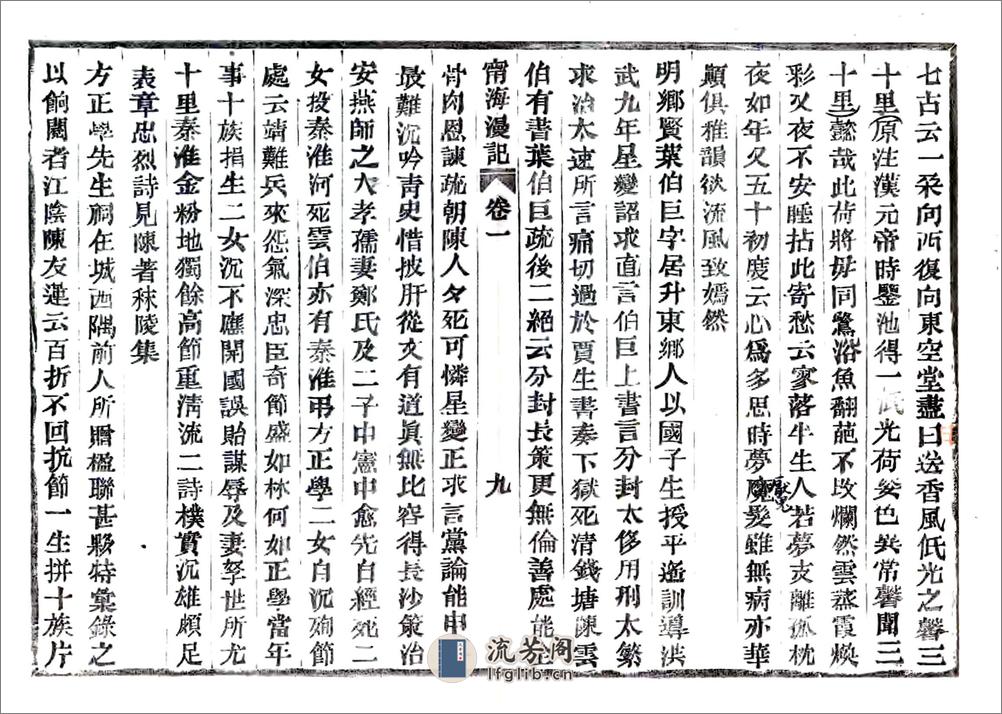 七古云一朶向西復向東空堂盡日送香風低光之馨三
十里(原注漢元帝時鑿池得一低光荷姿色異常馨聞三
十里)懿哉此荷將毋同鷺浴魚翻葩不攺爛然雲蒸霞煥
彩又夜不安睡拈此寄愁云寥落半生人若夢支離孤枕
夜如年又五十初度云心爲多思時夢魘髮雖無病亦華
顚俱雅韻欲流風致嫣然
明鄉賢葉伯巨字居升東鄉人以國子生授平遙訓導洪
武九年星變詔求直言伯巨上書言分封太侈用刑太繁
求治太速所言痛切過於賈生書奏下獄死清錢塘陳雲
伯有書葉伯巨疏後二絕云分封長策更無倫善處能全
甯海漫記 卷一 九
骨肉恩諫疏朝陳人夕死可憐星變正求言黨論能申
最難沉吟靑史惜披肝從文有道眞無比容得長沙策治
安燕師之入孝孺妻鄭氏及二子中憲中愈先自經死二
女投秦淮河死雲伯亦有秦淮弔方正學二女自沉殉節
處云靖難兵來怨氣深忠臣奇節盛如林何如正學當年
事十族捐生二女沉不應開國誤貽謀辱及妻孥世所尤
十里秦淮金粉地獨餘高節重淸流二詩樸實沉雄頗足
表章忠烈詩見陳著秣陵集
方正學先生祠在城西隅前人所贈楹聯甚夥特彙錄之
以餉閱者江陰陳友蓮云百折不回抗節一生拼十族片
流芳阁
lfglib.cn